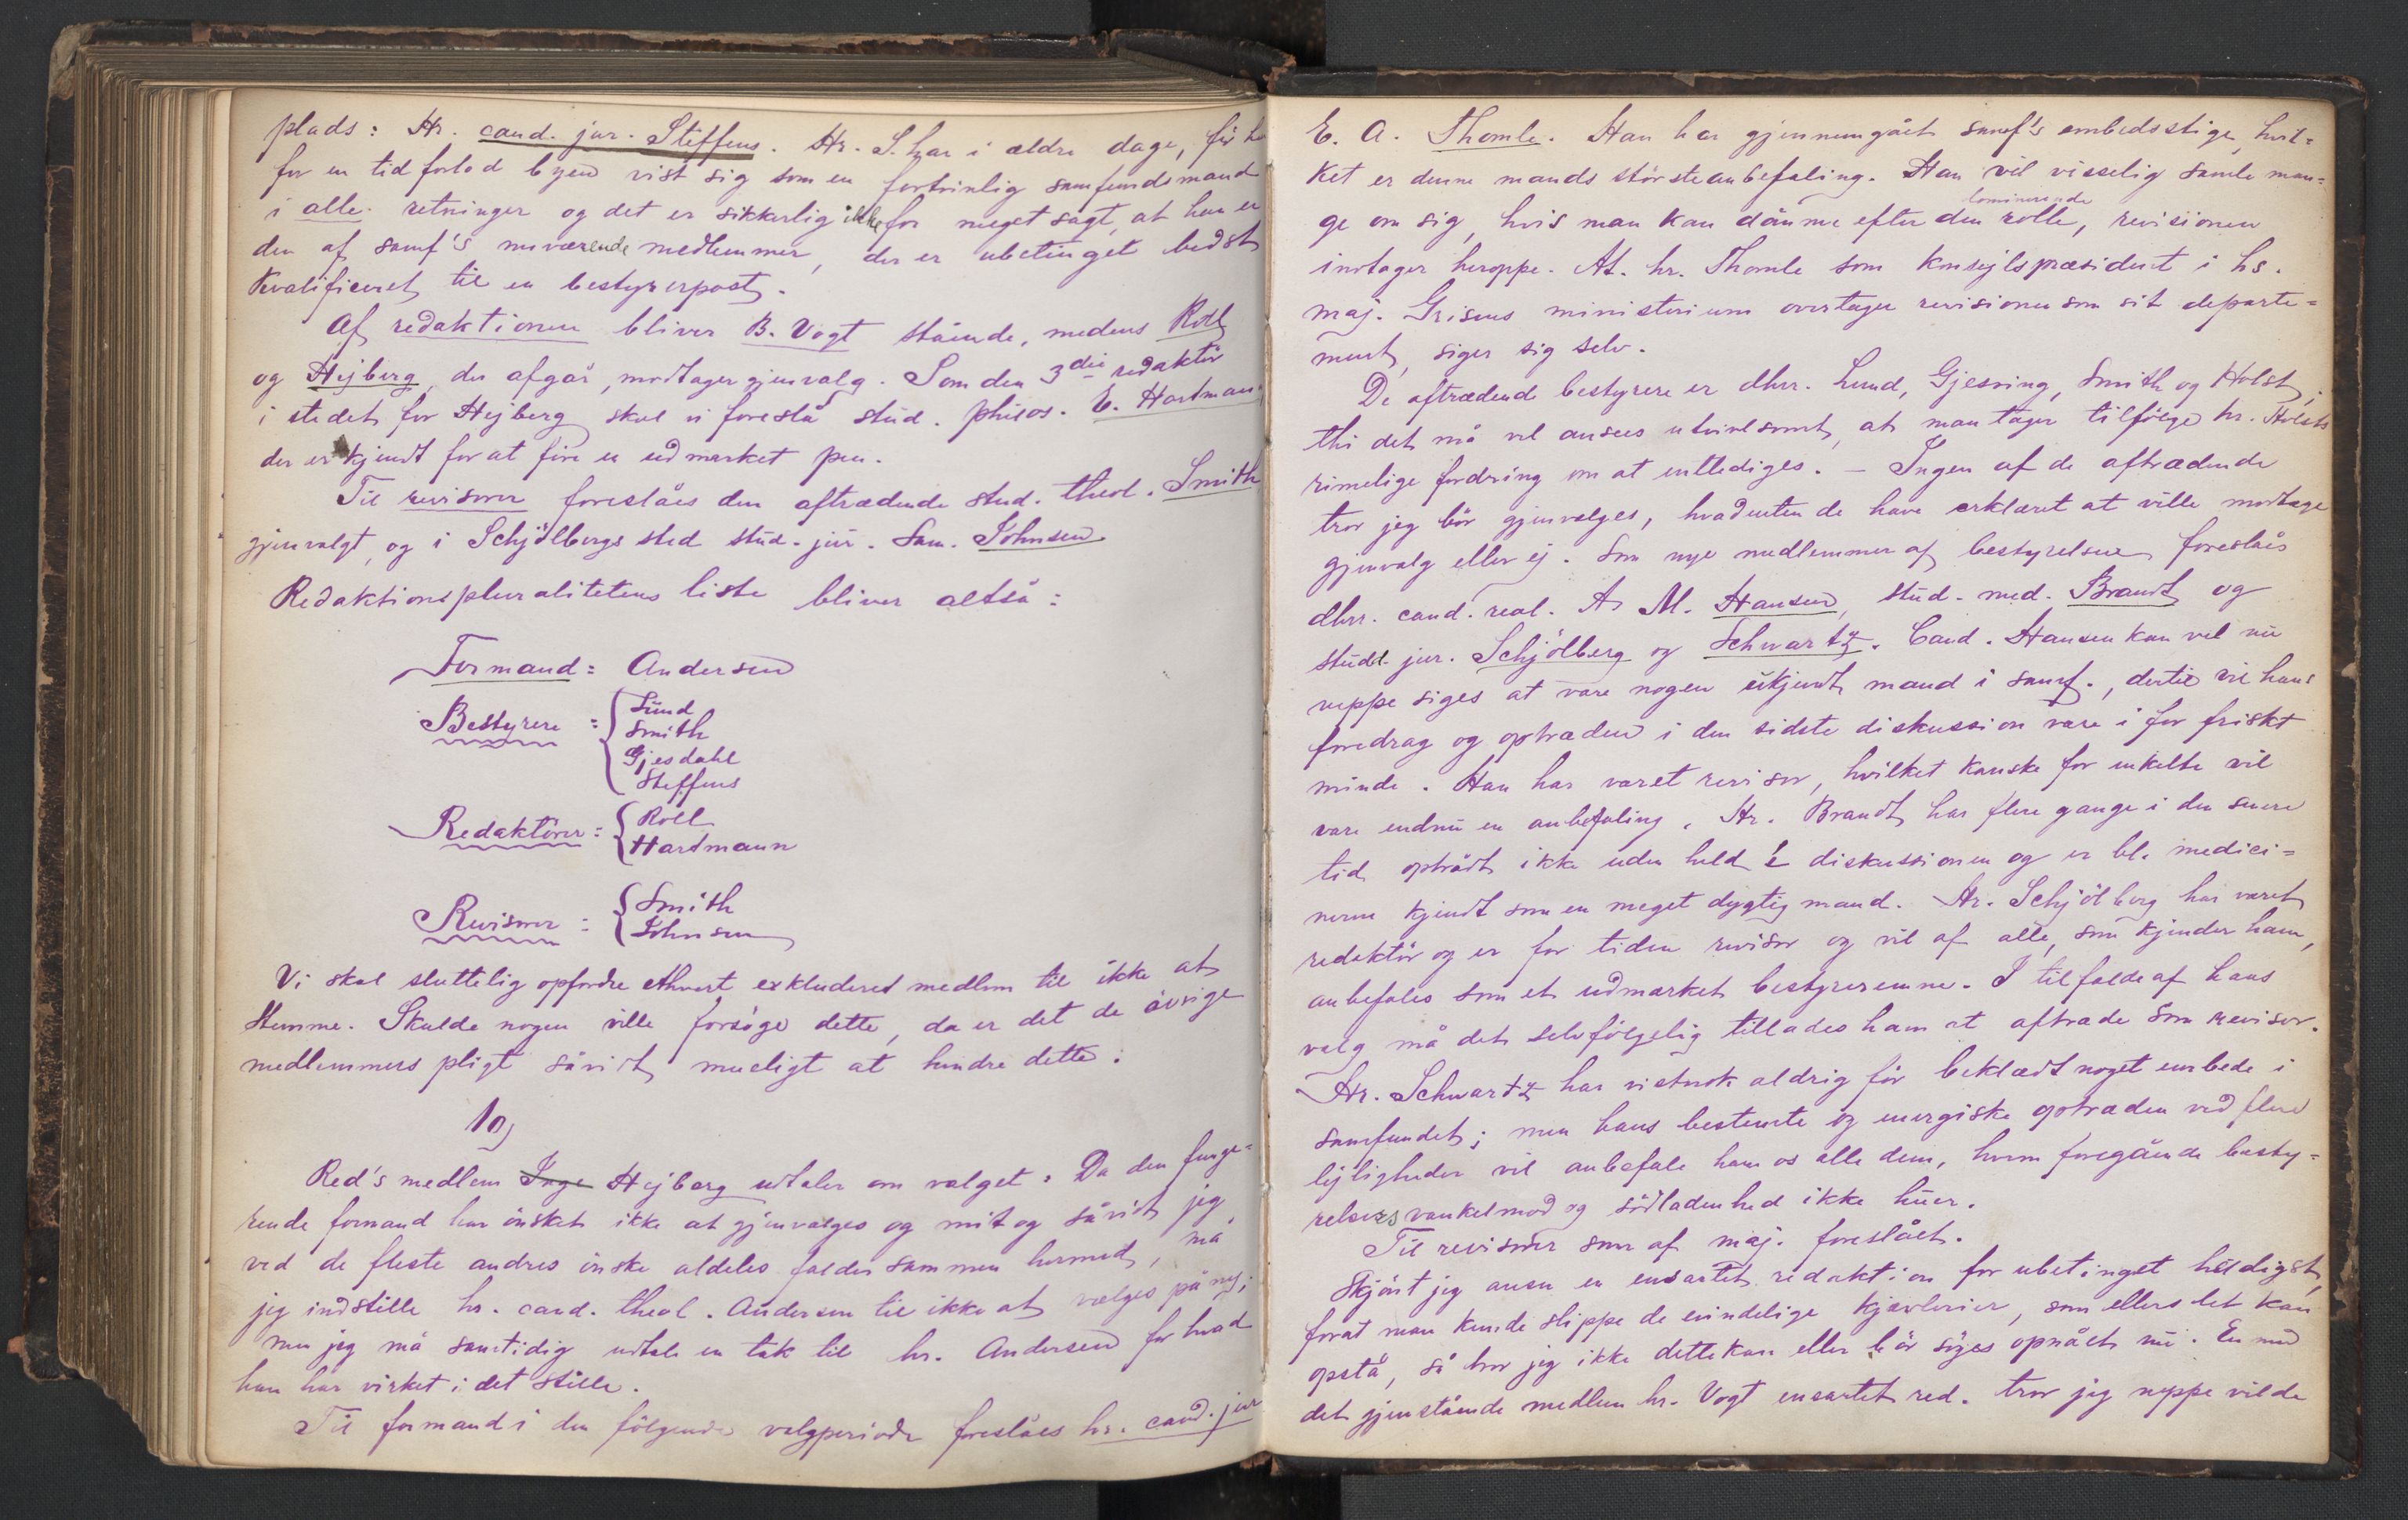 plads: Hr. cand. jur. Steffens. Hr. S. har i ældre dage, før
for en tid forlod byen vist sig som en fortrinlig samfundsmand
i alle retninger og det er sikkerlig ikke for meget sagt, at han er
den af samf's nuværende medlemmer, der er ubetinget bedst
kvalificeret til en bestyrerpost.
Af redaktionen bliver B. Vogt stående, medens Roll
og Hejberg, der afgår, modtager gjenvalg. Som den 3die redaktör
i stedet for Hejberg skal vi foreslå stud. philos. E. Hartman
der er kjendt for at före en udmærket pen.
Til revisorer foreslåes den aftrædende stud. theol. Smith
gjenvalgt, og i Schjölbergs sted stud. jur. Sam. Johnsen.
Redaktionspluralitetens liste bliver altså:
Formand: Andersen
Bestyrere: Lund
Smith
Gjesdahl
Steffens
Redaktörer: Roll
Hartmann
Revisorer: Smith
Johnsen
Vi skal sluttelig opfordre ethvert exkluderet medlem til ikke at
stemme. Skulde nogen ville forsöge dette, da er det de övrige
medlemmers pligt såvidt mueligt at hindre dette.
10)
Red's medlem Inge Hejberg udtaler om valget: Da den funge-
rende formand har önsket ikke at gjenvælges og mit og såvidt jeg
ved de fleste andres önske aldeles falder sammen hermed, må
jeg indstille hr. cand. theol. Andersen til ikke at vælges på ny;
men jeg må samtidig udtale en tak til hr. Andersen for hvad
han har virket i det stille.
Til formand i den fölgende valgperiode foreslåes hr. cand. jur
E. A. Thomle. Han har gjennemgået samf's embedsstige, hvil-
ket er denne mands störste anbefaling. Han vil visselig samle man-
ge om sig, hvis man kan dömme efter den dominerende rolle, revisionen
indtager heroppe. At hr. Thomle som konsejlspræsident i hs.
maj. Grisens ministerium overtager revisionen som sit departe-
ment, siger sig selv.
De aftrædende bestyrere er dhrr. Lund, Gjesning, Smith og Holst,
thi det må vel ansees utvivlsomt, at man tager tilfölge hr. Holsts
rimelige fordring om at entlediges. – Ingen af de aftrædende
tror jeg bör gjenvælges, hvadenten de have erklæret at ville modtage
gjenvalg eller ej. Som nye medlemmer af bestyrelsen foreslåes
dhrr. cand. real. A M. Hansen, stud. med. Brandt og
studd. jur. Schjölberg og Schwartz. Cand. Hansen kan vel nu
neppe siges at være nogen ukjendt mand i samf., dertil vil hans
foredrag og optræden i den sidste diskussion være i for friskt
minde. Han har været revisor, hvilket kanske for enkelte vil
være endnu en anbefaling. Hr. Brandt har flere gange i den senere
tid optrådt ikke uden held i diskussionen og er bl. medici-
nerne kjendt som en meget dygtig mand. Hr. Schjölberg har været
redaktör og er for tiden revisor og vil af alle, som kjender ham,
anbefales som et udmærket bestyreremne. I tilfælde af hans
valg må det selvfölgelig tillades ham at aftræde som revisor.
Hr. Schwartz har vistnok aldrig för beklædt noget embede i
samfundet; men hans bestemte og energiske optræden ved flere
lejligheder vil anbefale ham os alle dem, hvem foregående besty-
relsers vankelmod og södladenhed ikke huer.
Til revisorer som af maj. foreslået.
Skjönt jeg anser en ensartet redaktion for ubetinget heldigst,
forat man kunde slippe de evindelige kjævlerier, som ellers let kan
opstå, så tror jeg ikke dette kan eller bör söges opnået nu. En med
det gjenstående medlem hr. Vogt ensartet red. tror jeg neppe vilde